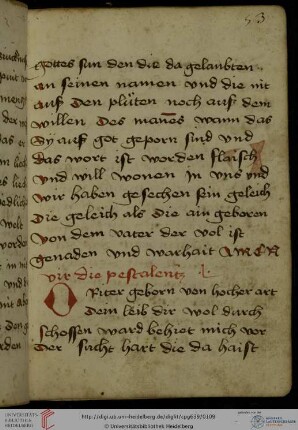 53
gottes sun den die da gelaubten
an seinen namen und die nit
auß den plüten noch auß dem
willen des manes wann das
sy auß got geporn sind und
das wort ist worden flaisch
und will wonen in uns und
wir haben gesechen sein geleich
die geleich als die ain geboren
von dem vater der vol ist
genaden und warhait AMEN
vir die pestalentz
O Riter geborn von hocher art
Dein leib dir wol durch
schossen ward behiet mich vor
der sücht hart die da haist
UNIVERSITÄTS-
BIBLIOTHEK
HEIDELBERG
http://digi.ub.uni-heidelberg.de/diglit/cpg659/0109
© Universitätsbibliothek Heidelberg